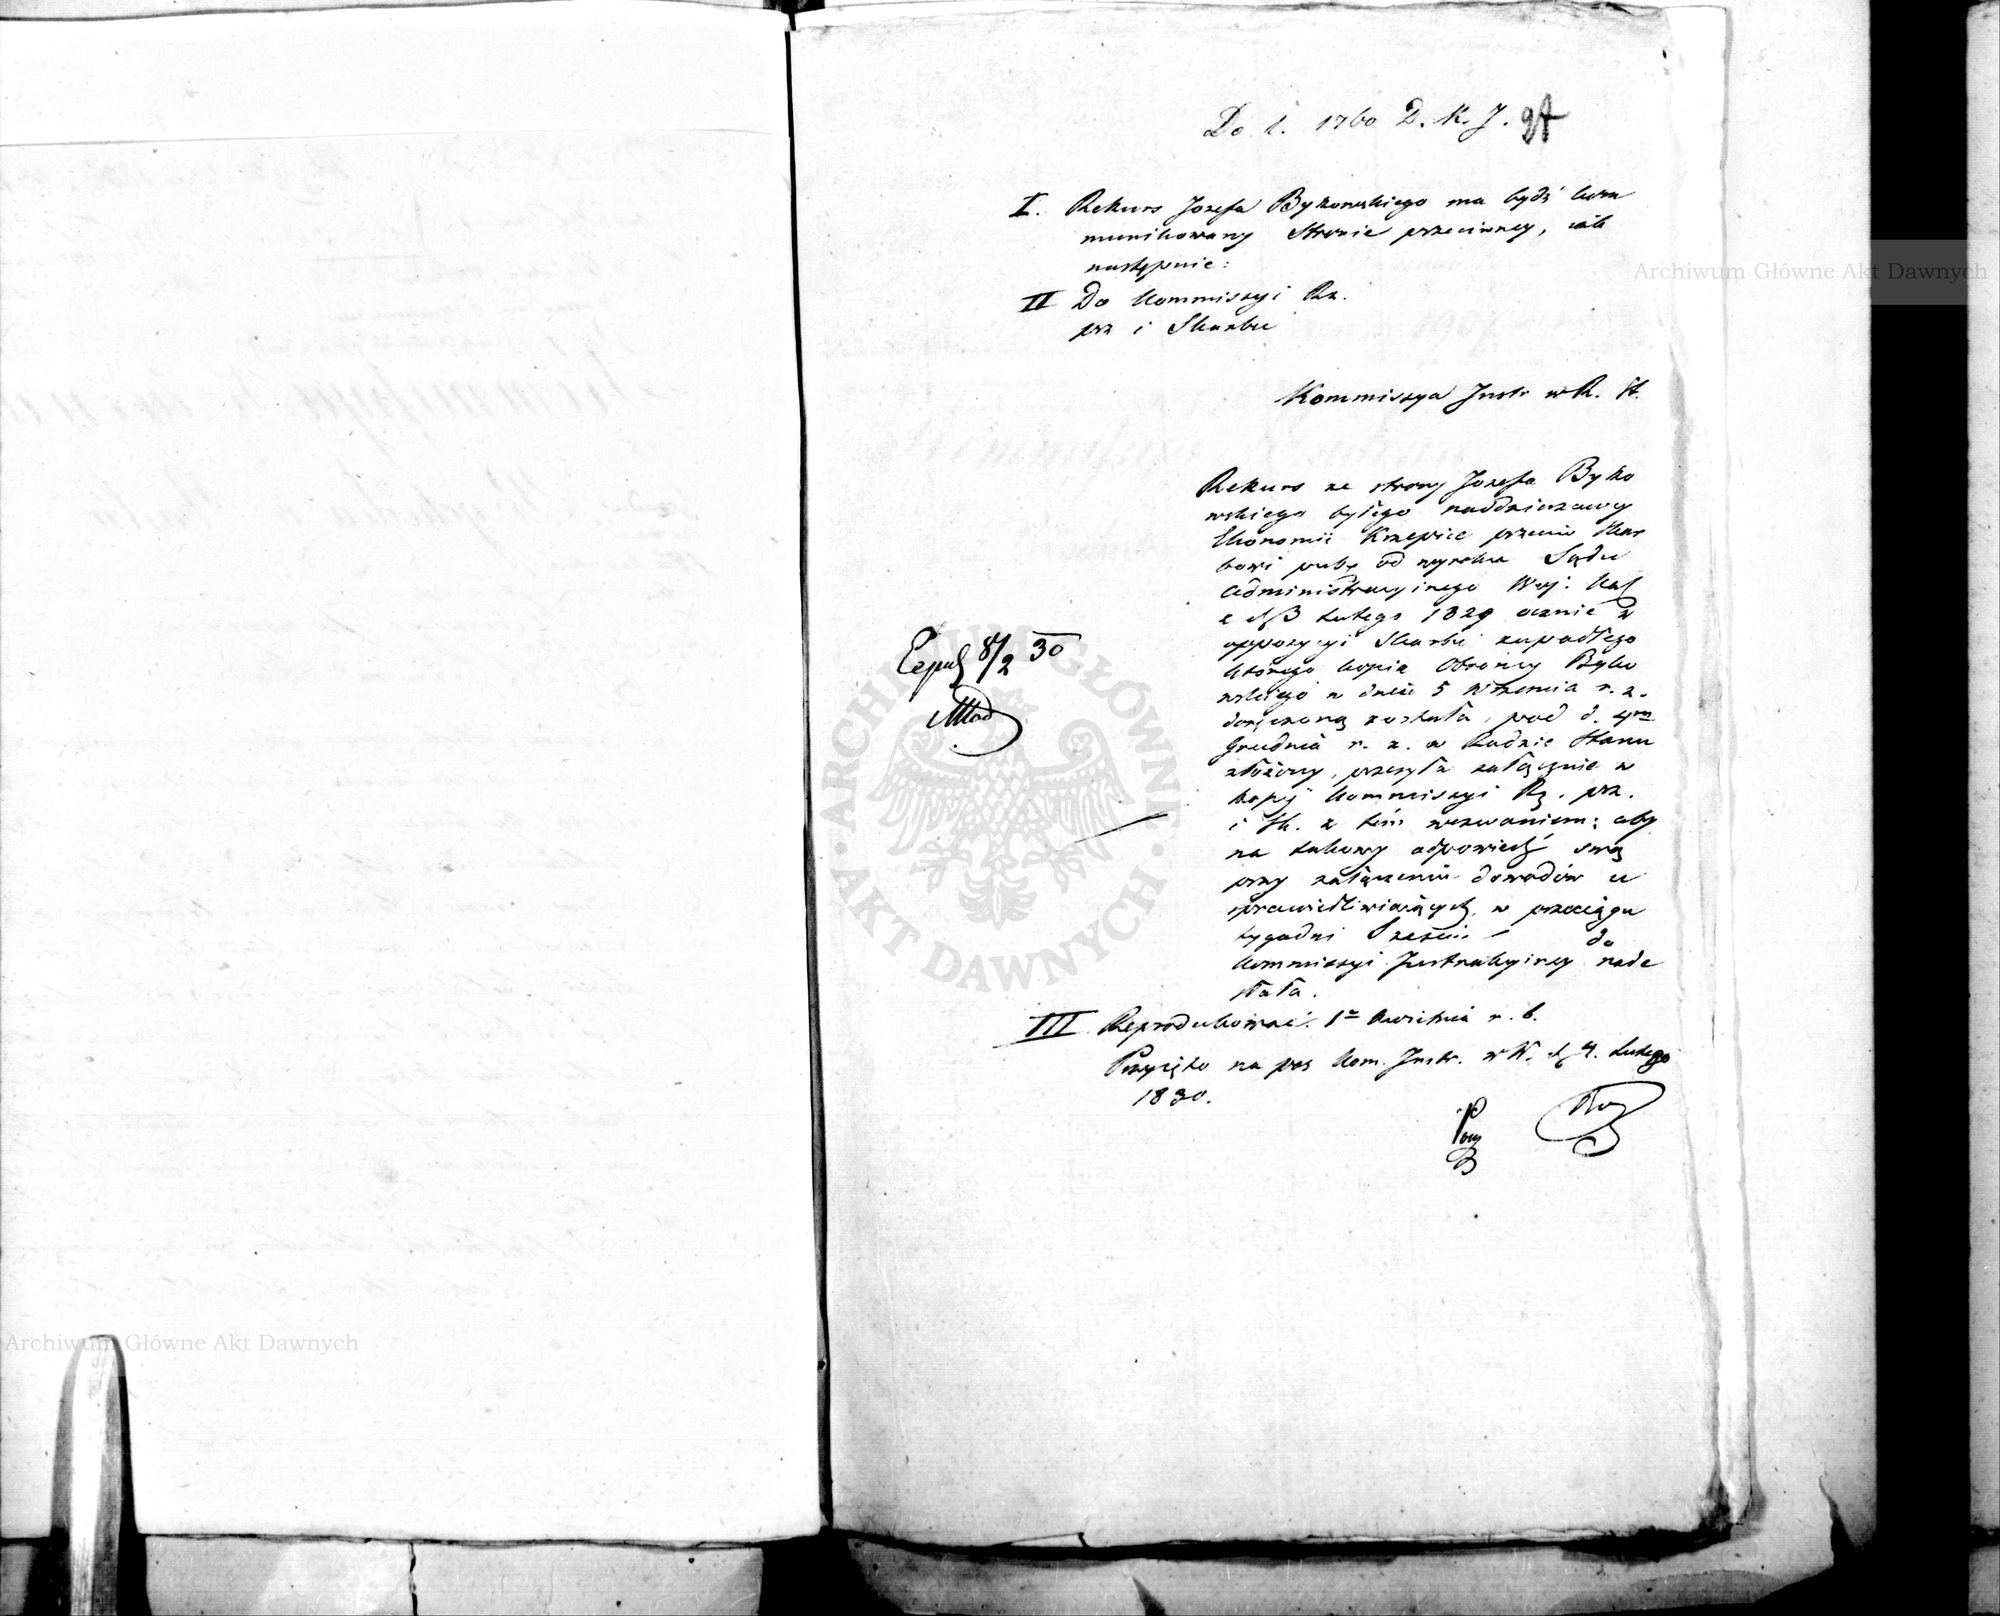 Do l. 1760 D. K. J.
I. Rekurs Józefa Bykowskiego ma bydź kom
munikowany Stronie przeciwney, iak
następuie:
II Do Kommiszyi Rz.
prz i Skarbu
Kommiszya Instr w R. St.
Rekurs ze strony Józefa Byko
wskiego byłego naddzierżawcy
Ekonomii Krzepice przeciw Skar
bowi publ od wyroku Sądu
Administracyinego Woj: Kal
z d 13 Lutego 1829 ocznie z
oppozycyi Skarbu zapadłego
którego kopia Obrońcy Byko
wskiego w dniu 5 Września r. z.
doręczoną została, pod d. 4m
Grudnia r. z. w Radzie Stanu
złożony, przesyła załącznie w
kopij Kommiszyi Rz. prz.
i Sk. z tém wezwaniem: aby
na takowy odpowiedź swą
przy załączeniu dowodów u
sprawiedliwiaiących, w przeciągu
tygodni Sześciu do
Kommiszyi Instrukcyiney nade
słała.
III Reprodukować 1o Kwietnia r. b.
Przyięto na pos Kom. Instr. w W. d 4. Lutego
1830.
8/2 30
Archiwum Główne Akt Dawnych
ARCHIWUM GŁÓWNE
AKT DAWNYCH
Archiwum Główne Akt Dawnych